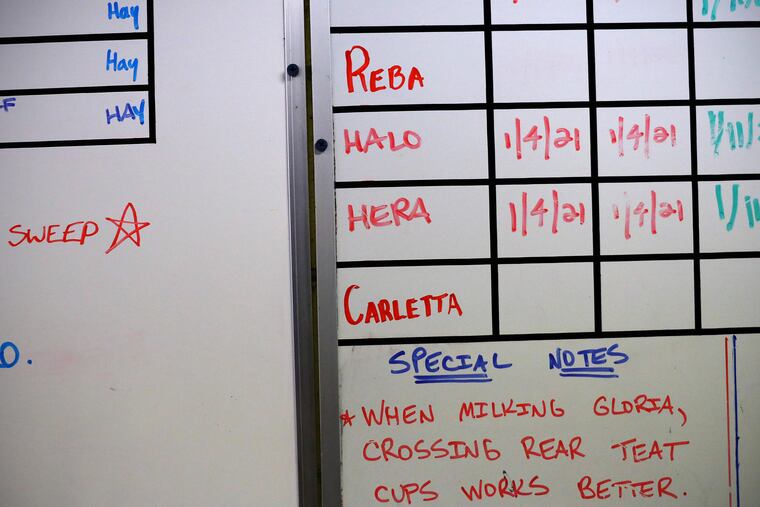 Hay
Hay
HAY
SWEEP
REBA
HALO 1/4/21 1/4/21
HERA 1/4/21 1/4/21
CARLETTA
SPECIAL NOTES
* WHEN MILKING GLORIA,
CROSSING REAR TEAT
CUPS WORKS BETTER.